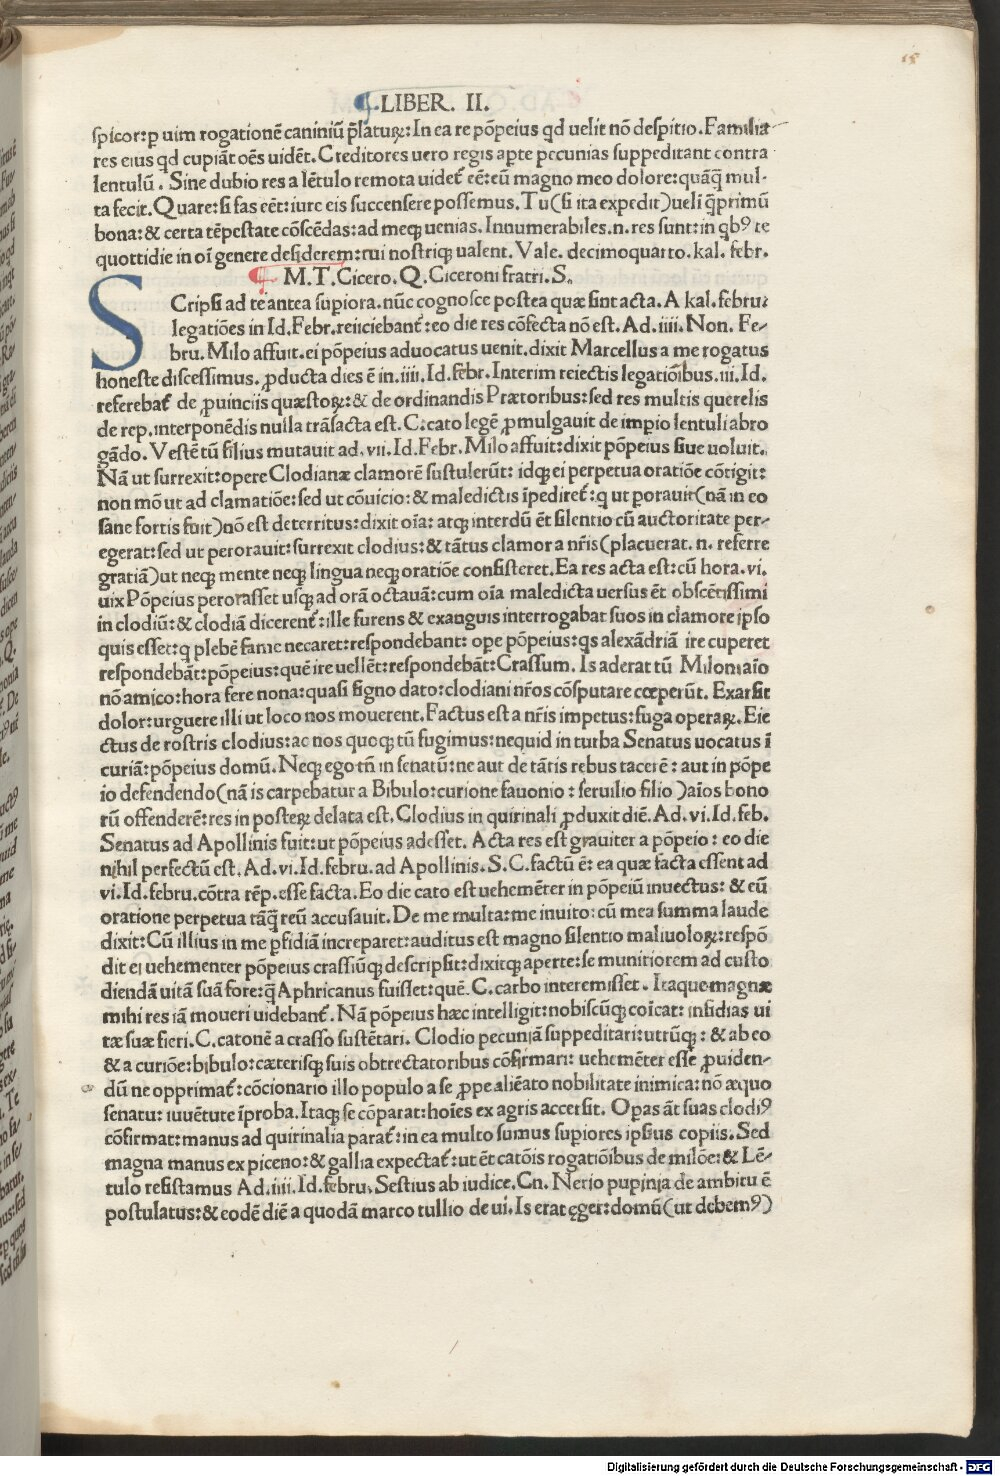 15
LIBER. II.
spicor: ꝑ uim rogationē caniniū p̄laturꝝ: In ea re põpeius qd uelit nō despitio. Familia
res eius qd cupiāt oēs uidēt. Creditores uero regis apte pecunias suppeditant contra
lentulū. Sine dubio res a lētulo remota uidet᷑ eē: cū magno meo dolore: quāq̄ mul-
ta fecit. Quare: si fas eēt: iure eis succensere possemus. Tu (si ita expedit) ueli q̄primū
bona: & certa tēpestate cōscēdas: ad meqꝫ uenias. Innumerabiles. n. res sunt: in qbꝰ te
quottidie in oī genere desiderem: tui nostriqꝫ ualent. Vale. decimoquarto. kal. febr.
M. T. Cicero. Q. Ciceroni fratri. S.
SCripsi ad te antea supiora. nūc cognosce postea quæ sint acta. A kal. februː
legatiōes in Id. Febr. reiiciebant᷑: eo die res cōfecta nō est. Ad. iiii. Non. Fe-
bru. Milo affuit. ei põpeius aduocatus uenit. dixit Marcellus a me rogatus
honeste discessimus. ꝓducta dies ē in. iiii. Id. febr. Interim reiectis legatiōibus. iii. Id.
referebat᷑ de ꝓuinciis quæstorꝝ: & de ordinandis Prætoribus: sed res multis querelis
de rep. interponēdis nulla trāsacta est. C. cato legē ꝓmulgauit de impio lentuli abro
gādo. Vestē tū filius mutauit ad. vii. Id. Febr. Milo affuit: dixit põpeius siue uoluit.
Nā ut surrexit: opere Clodianæ clamorē sustulerūt: idqꝫ ei perpetua oratiōe cōtigit:
non mō ut ad clamatiōe: sed ut cōuicio: & maledictis īpediret᷑: q ut porauit (nā in eo
sane fortis fuit) nō est deterritus: dixit oīa: atqꝫ interdū ēt silentio cū auctoritate per-
egerat: sed ut perorauit: surrexit clodius: & tātus clamor a nr̄is (placuerat. n. referre
gratiā) ut neqꝫ mente neqꝫ lingua neqꝫ oratiōe consisteret. Ea res acta est: cū hora. vi.
uix Põpeius perorasset usqꝫ ad orā octauā: cum oīa maledicta uersus ēt obscētissimi
in clodiū: & clodiā dicerent᷑: ille furens & exanguis interrogabar suos in clamore ipso
quis esset: q plebē fame necaret: respondebant: ope põpeius: qs alexādriā ire cuperet
respondebāt: põpeius: quē ire uellēt: respondebāt: Crassum. Is aderat tū Miloni aīo
nō amico: hora fere nona: quasi signo dato: clodiani nr̄os cōsputare cœperūt. Exarsit
dolor: urguere illi ut loco nos mouerent. Factus est a nr̄is impetus: fuga operarꝝ. Eie
ctus de rostris clodius: ac nos quoqꝫ tū fugimus: nequid in turba Senatus uocatus ī
curiā: põpeius domū. Neqꝫ ego tn̄ in senatū: ne aut de tātis rebus tacerē: aut in põpe
io defendendo (nā is carpebatur a Bibulo: curione fauonio: seruilio filio) aīos bono
rū offenderē: res in posterꝝ delata est. Clodius in quirinali ꝓduxit diē. Ad. vi. Id. feb.
Senatus ad Apollinis fuit: ut põpeius adesset. Acta res est grauiter a põpeio: eo die
nihil perfectū est. Ad. vi. Id. febru. ad Apollinis. S. C. factū ē: ea quæ facta essent ad
vi. Id. febru. cōtra rēp. esse facta. Eo die cato est uehemēter in põpeiū inuectus: & eū
oratione perpetua tāq̄ reū accusauit. De me multa: me inuito: cū mea summa laude
dixit: Cū illius in me ꝑfidiā increparet: auditus est magno silentio maliuolorꝝ: respō
dit ei uehementer põpeius crassiūqꝫ descripsit: dixitqꝫ aperte: se munitiorem ad custo
diendā uitā suā fore: q̄ Aphricanus fuisset: quē. C. carbo interemisset. Itaque magnæ
mihi res iā moueri uidebant᷑. Nā põpeius hæc intelligit: nobiscūqꝫ coīcat: insidias ui
tæ suæ fieri. C. catonē a crasso sustētari. Clodio pecuniā suppeditari: utrūqꝫ: & ab eo
& a curiōe: bibulo: cæterisqꝫ suis obtrectatoribus cōfirmari: uehemēter esse ꝓuiden-
dū ne opprimat᷑: cōcionario illo populo a se ꝓpe aliēato nobilitate inimica: nō æquo
senatu: iuuētute īproba. Itaqꝫ se cōparat: hoīes ex agris accersit. Opas āt suas clodiꝰ
cōfirmat: manus ad quirinalia parat᷑: in ea multo sumus supiores ipsius copiis. Sed
magna manus ex piceno: & gallia expectat᷑: ut ēt catōis rogatiōibus de milōe: & Lē-
tulo resistamus Ad. iiii. Id. febru. Sestius ab iudice. Cn. Nerio pupinia de ambitu ē
postulatus: & eodē diē a quodā marco tullio de ui. Is erat ęger: domū (ut debemꝰ)
Digitalisierung gefördert durch die Deutsche Forschungsgemeinschaft - DFG